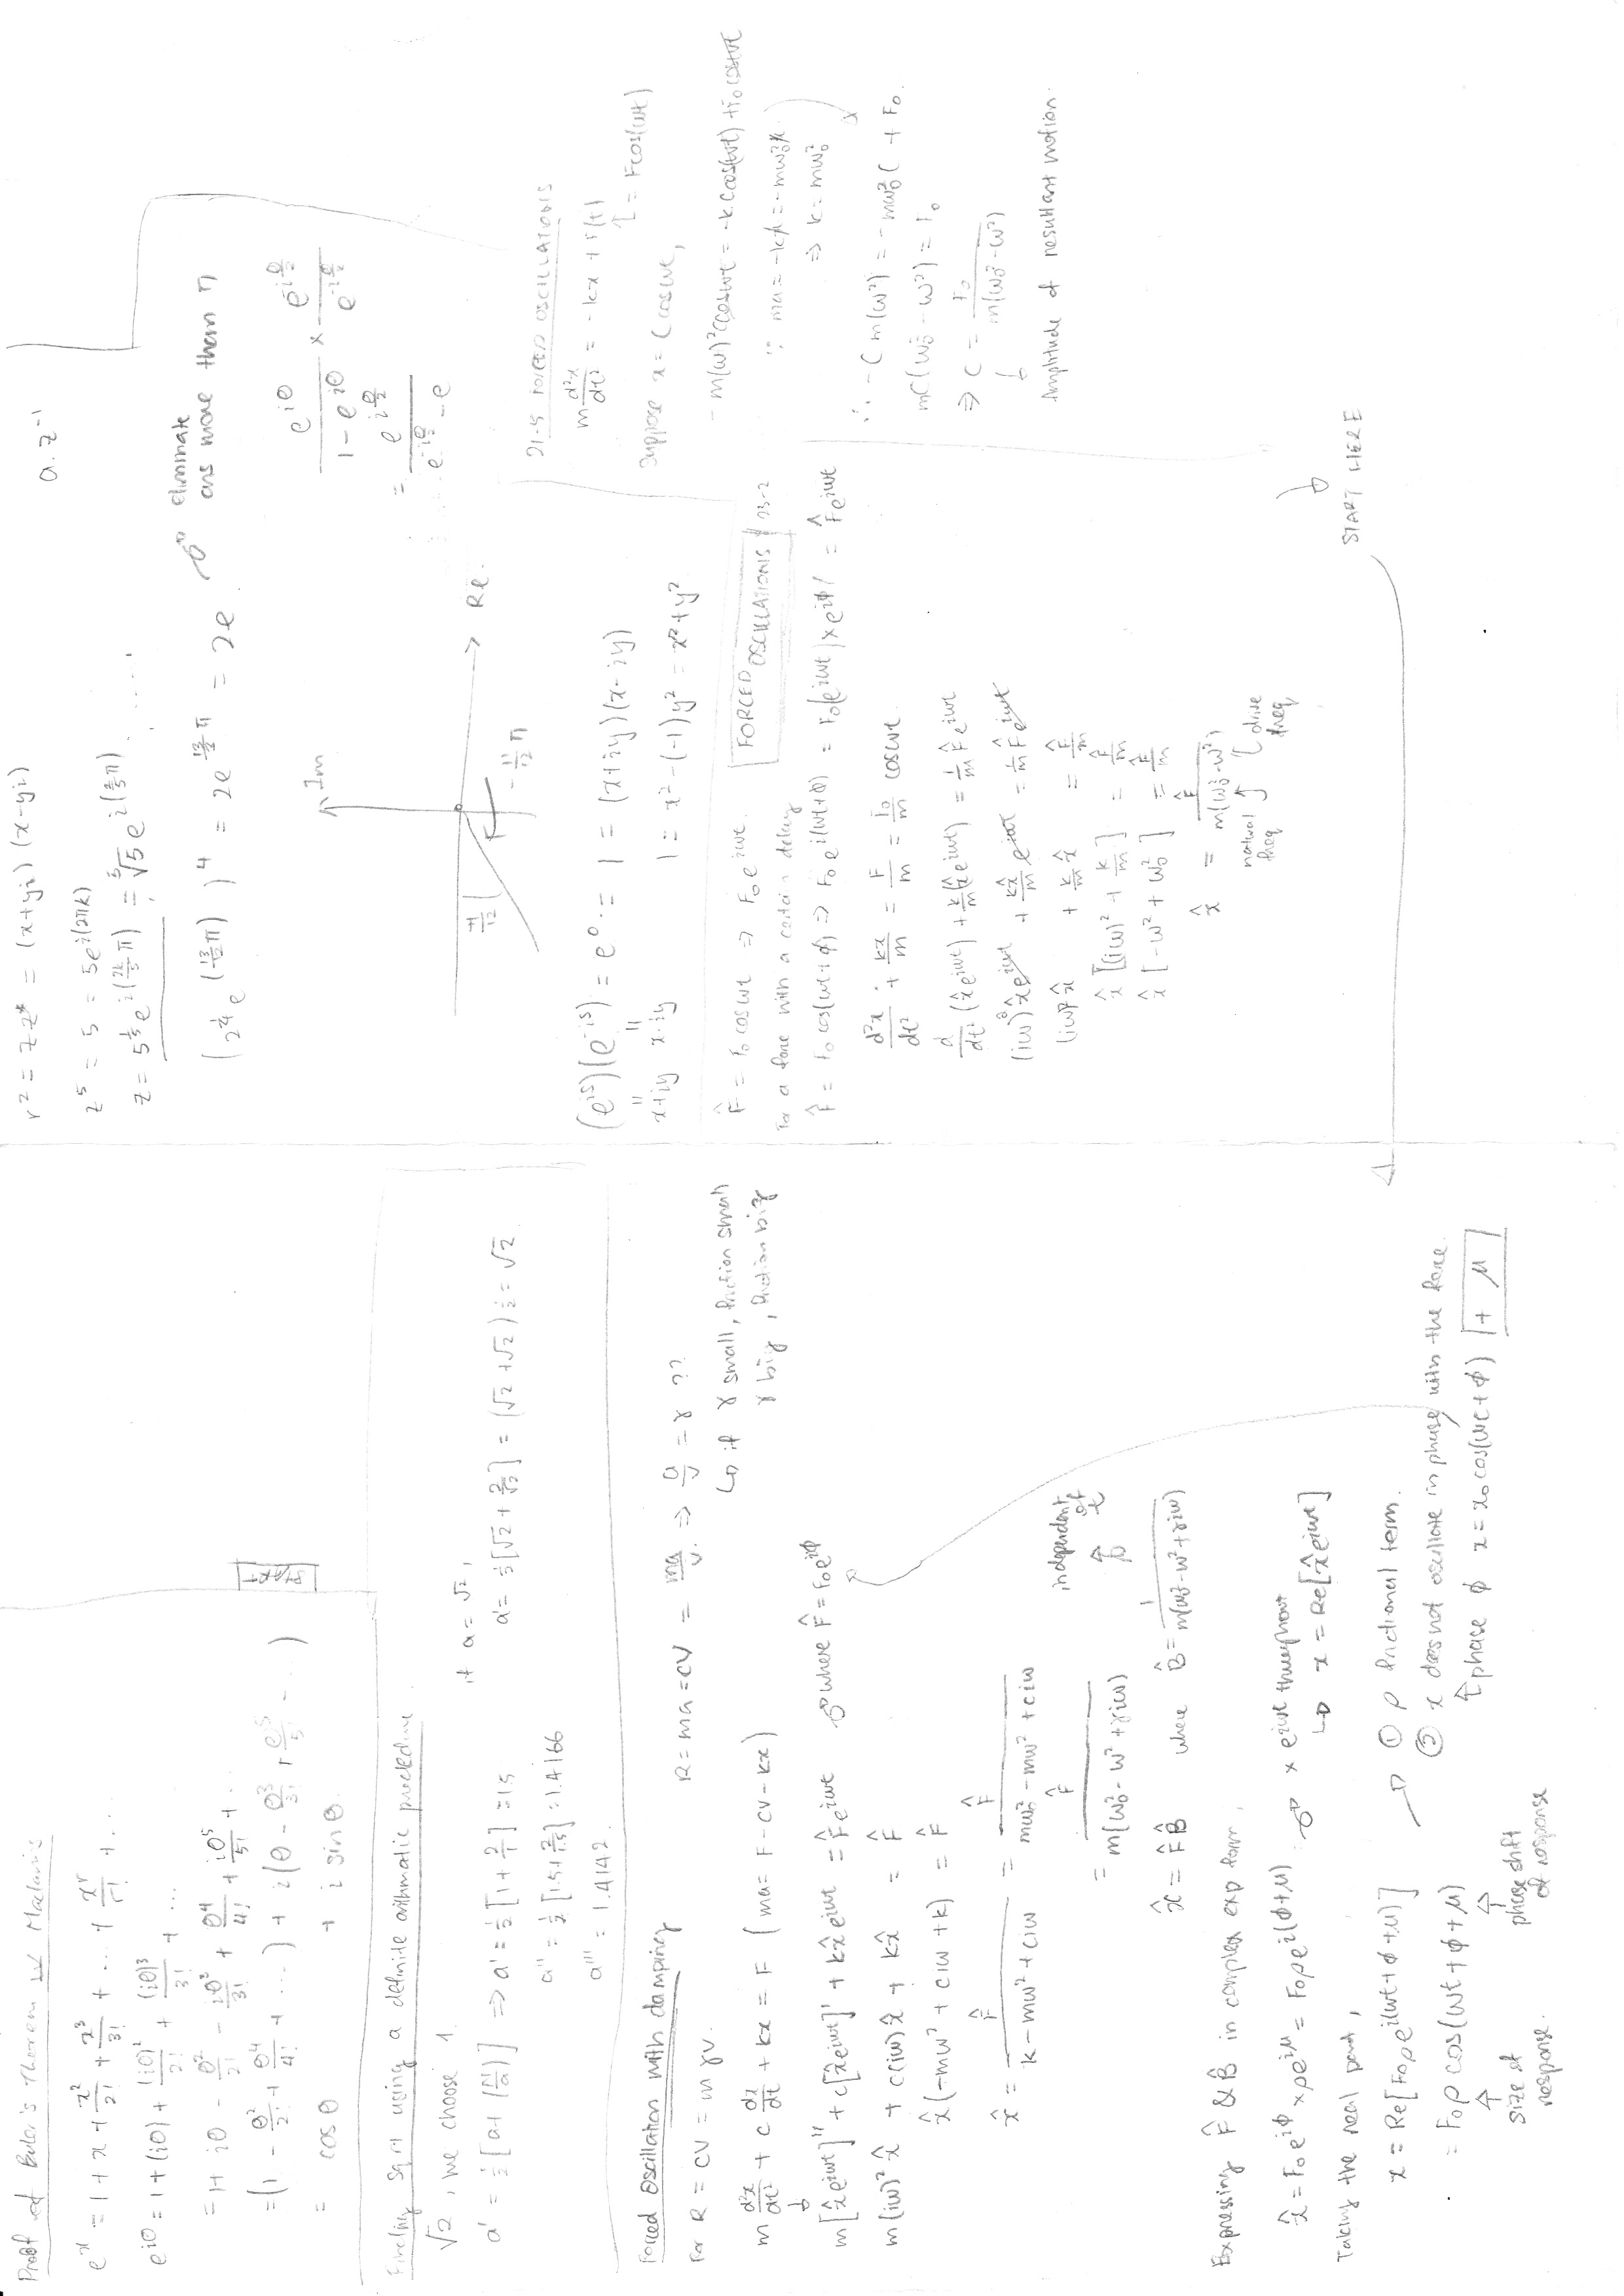 Proof of Euler's Theorem
e^x = 1 + x + x²/2! + x³/3! + ... + x^r/r! + ...
e^iθ = 1 + (iθ) + (iθ)²/2! + (iθ)³/3! + ...
= 1 + iθ - θ²/2! - iθ³/3! + θ⁴/4! + iθ⁵/5! + ...
= (1 - θ²/2! + θ⁴/4! + ...) + i(θ - θ³/3! + θ⁵/5! ...)
= cosθ + i sinθ
START
Finding sqrt using a definite arithmatic procedure
√2, we choose 1
a' = ½[a + (N/a)] ⇒ a' = ½[1 + 2/1] = 1.5
a'' = ½[1.5 + 2/1.5] = 1.4166
a''' = 1.4142
if a = √2,
a' = ½[√2 + 2/√2] = (√2 + √2)½ = √2
Forced Oscillation with damping
For R = cv = mγv.
R = ma = cv = ma/v ⇒ a/v = γ ??
↳ if γ small, friction small
γ big, friction big
m d²x/dt² + c dx/dt + kx = F (ma = F - cv - kx)
m[x̂e^iωt]'' + c[x̂e^iωt]' + kx̂e^iωt = F̂e^iωt where F̂ = F₀e^iφ
m(iω)²x̂ + c(iω)x̂ + kx̂ = F̂
x̂(-mω² + ciω + k) = F̂
x̂ = F̂/(k - mω² + ciω) = F̂/(mω₀² - mω² + ciω)
= F̂/m(ω₀² - ω² + γiω)
independent of t
x̂ = F̂B̂ where B̂ = 1/m(ω₀² - ω² + γiω)
Expressing F̂ & B̂ in complex exp form,
x̂ = F₀e^iφ × ρe^iμ = F₀ρe^i(φ+μ) × e^iωt throughout
↳ x = Re[x̂e^iωt]
Taking the real part,
x = Re[F₀ρe^i(ωt+φ+μ)]
= F₀ρ cos(ωt + φ + μ)
size of response.
phase shift of response
① ρ frictional term.
② x does not oscillate in phase with the force.
↑ phase φ x = x₀cos(ωt + φ) + μ
r² = zz* = (x+yi)(x-yi)
a. z⁻¹
z⁵ = 5 = 5e^i(2πk)
z = 5^⅕ e^i(2k/5 π) = ⁵√5 e^i(2/5 π), .....
(2^¼ e^(13/2 π))⁴ = 2e^13/2 π = 2e
eliminate
ans more than π
Im
Re.
-11/12 π
e^iθ/(1 - e^iθ) × e^-iθ/2 / e^-iθ/2
= e^iθ/2 / e^-iθ/2 - e
(e^is)(e^-is) = e⁰ = 1 = (x+iy)(x-iy)
x+iy x-iy
1 = x² - (-1)y² = x² + y²
FORCED OSCILLATIONS 23-2
F̂ = F₀ cosωt ⇒ F₀e^iωt.
For a force with a certain delay
F̂ = F₀ cos(ωt+φ) ⇒ F₀e^i(ωt+φ) = F₀(e^iωt) × e^iφ = F̂e^iωt
d²x/dt² + kx/m = F/m = F₀/m cosωt
d/dt²(x̂e^iωt) + k/m(x̂e^iωt) = 1/m F̂e^iωt
(iω)²x̂e^iωt + kx̂/m e^iωt = 1/m F̂e^iωt
(iω)²x̂ + k/m x̂ = F̂/m
x̂[(iω)² + k/m] = F̂/m
x̂[-ω² + ω₀²] = F̂/m
x̂ = F̂/m(ω₀² - ω²)
natural freq
drive freq
21-5 FORCED OSCILLATIONS
m d²x/dt² = -kx + F(t)
= Fcos(ωt)
Suppose x = Ccosωt,
-m(ω)²Ccosωt = -kCcos(ωt) + F₀cosωt
∵ ma = -kx = -mω₀²x
⇒ k = mω₀²
∴ -Cm(ω²) = -mω₀²C + F₀.
mC(ω₀² - ω²) = F₀
⇒ C = F₀/m(ω₀² - ω²)
Amplitude of resultant motion.
START HERE